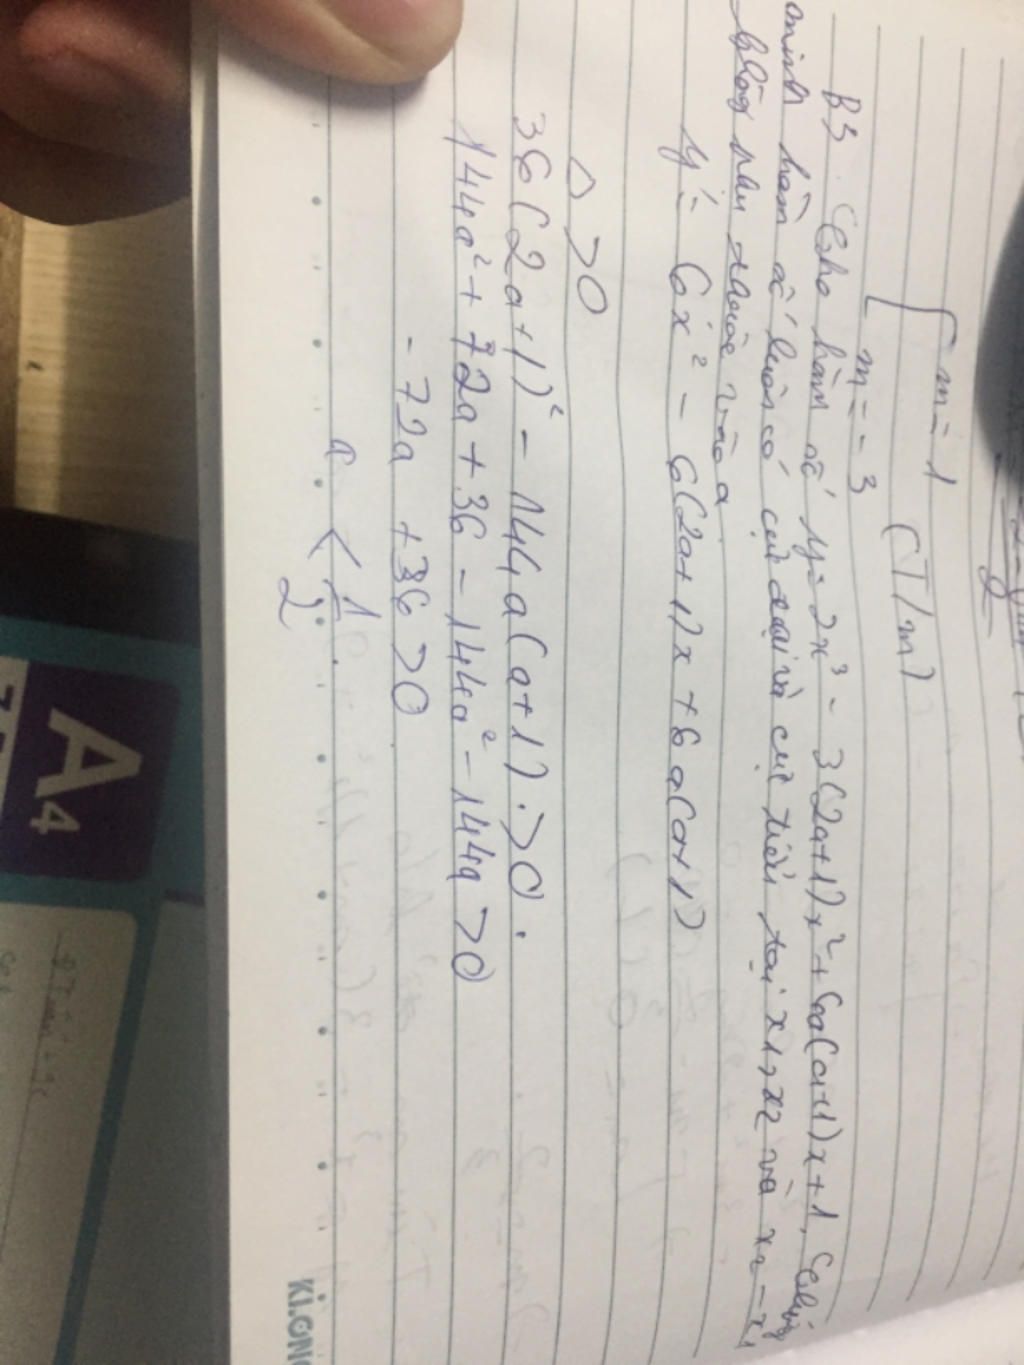 m = 1
m = -3
(T/m)
B3. Cho hàm số y = 2x³ - 3(2a+1)x² + 6a(a+1)x + 1. Chứng
minh hàm số luôn có cực đại và cực tiểu tại x1, x2 và x2 - x1
không phụ thuộc vào a
y' = 6x² - 6(2a+1)x + 6a(a+1)
Δ > 0
36(2a+1)² - 144a(a+1) > 0.
144a² + 72a + 36 - 144a² - 144a > 0
- 72a + 36 > 0
a < 1/2
A4
Ki.ONG